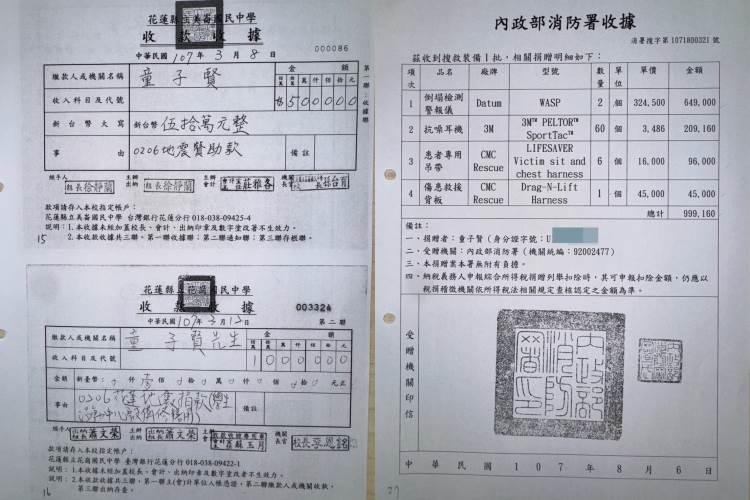 花蓮縣立美崙國民中學
收款收據
中華民國107年3月8日
000086
繳款人或機關名稱 童子賢
金額
億 仟 佰 拾 萬 仟 佰 拾 元
收入科目及代號
500000
新台幣大寫 新台幣伍拾萬元整
事由 0206地震贊助款 備註
第一聯:收據聯
經手人 組長徐靜蘭
主辦出納 組長徐靜蘭
主辦會計 莊雅各
機關長官
款項請存入本校指定帳戶:
花蓮縣立美崙國民中學 台灣銀行花蓮分行 018-038-09425-4
說明:1.本收據未經加蓋校長、會計、出納印章及數字塗改者不生效力。
2.本收款收據共三聯。第一聯收據聯;第二聯通知聯;第三聯存根聯。
15
花蓮縣立花崗國民中學
收款收據
003324
中華民國107年3月12日
第二聯
繳款人或機關名稱 童子賢先生
金額
收入科目及代號
1000000
金額 新臺幣
事由 備註
經手人 蕭文榮
主辦出納 蕭文榮
主辦會計 蘇玉月
機關長官 校長李恩銘
款項請存入本校指定帳戶:
花蓮縣立花崗國民中學 臺灣銀行花蓮分行 018-038-09422-1
說明:1.本收據未經加蓋校長、會計、出納印章及數字塗改者不生效力。
2.本收款收據共三聯,第一聯主(會)計單位入帳憑證,第二聯繳款人或機關收執,
第三聯出納存查。
16
內政部消防署收據
消署搜字第1071800321號
茲收到搜救裝備1批,相關捐贈明細如下:
項次 品名 廠牌 型號 數量 單位 單價 金額
1 倒塌檢測警報儀 Datum WASP 2 個 324,500 649,000
2 抗噪耳機 3M 3M™ PELTOR™ SportTac™ 60 個 3,486 209,160
3 患者專用吊帶 CMC Rescue LIFESAVER Victim sit and chest harness 6 個 16,000 96,000
4 傷患救援背板 CMC Rescue Drag-N-Lift Harness 1 個 45,000 45,000
總計 999,160
備註:
一、捐贈者:童子賢(身分證字號:U
二、受贈機關:內政部消防署(機關統編:92002477)
三、本捐贈案本署無附有負擔。
四、納稅義務人申報綜合所得稅捐贈列舉扣除時,其可申報扣除金額,仍應以
稅捐稽徵機關依所得稅法相關規定查核認定之金額為準。
受贈機關印信
內政部消防署印
中華民國107年8月6日